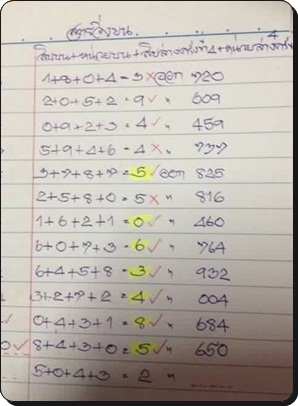 สูตรวิ่งบน
สิบบน+หน่วยบน+สิบล่างครั้งที่4+หน่วยล่างครั้งที่4
1+8+0+4=3×ออก 920
2+0+5+2=9✓ " 609
0+9+2+3=4✓ " 459
5+9+4+6=4× " 737
3+7+8+7=5✓ออก 825
2+5+8+0=5× " 816
1+6+2+1=0✓ " 460
6+0+7+3=6✓ " 764
6+4+5+8=3✓ " 932
3+2+7+2=4✓ " 004
0+4+3+1=8✓ " 684
8+4+3+0=5✓ " 650
5+0+4+3=2 "